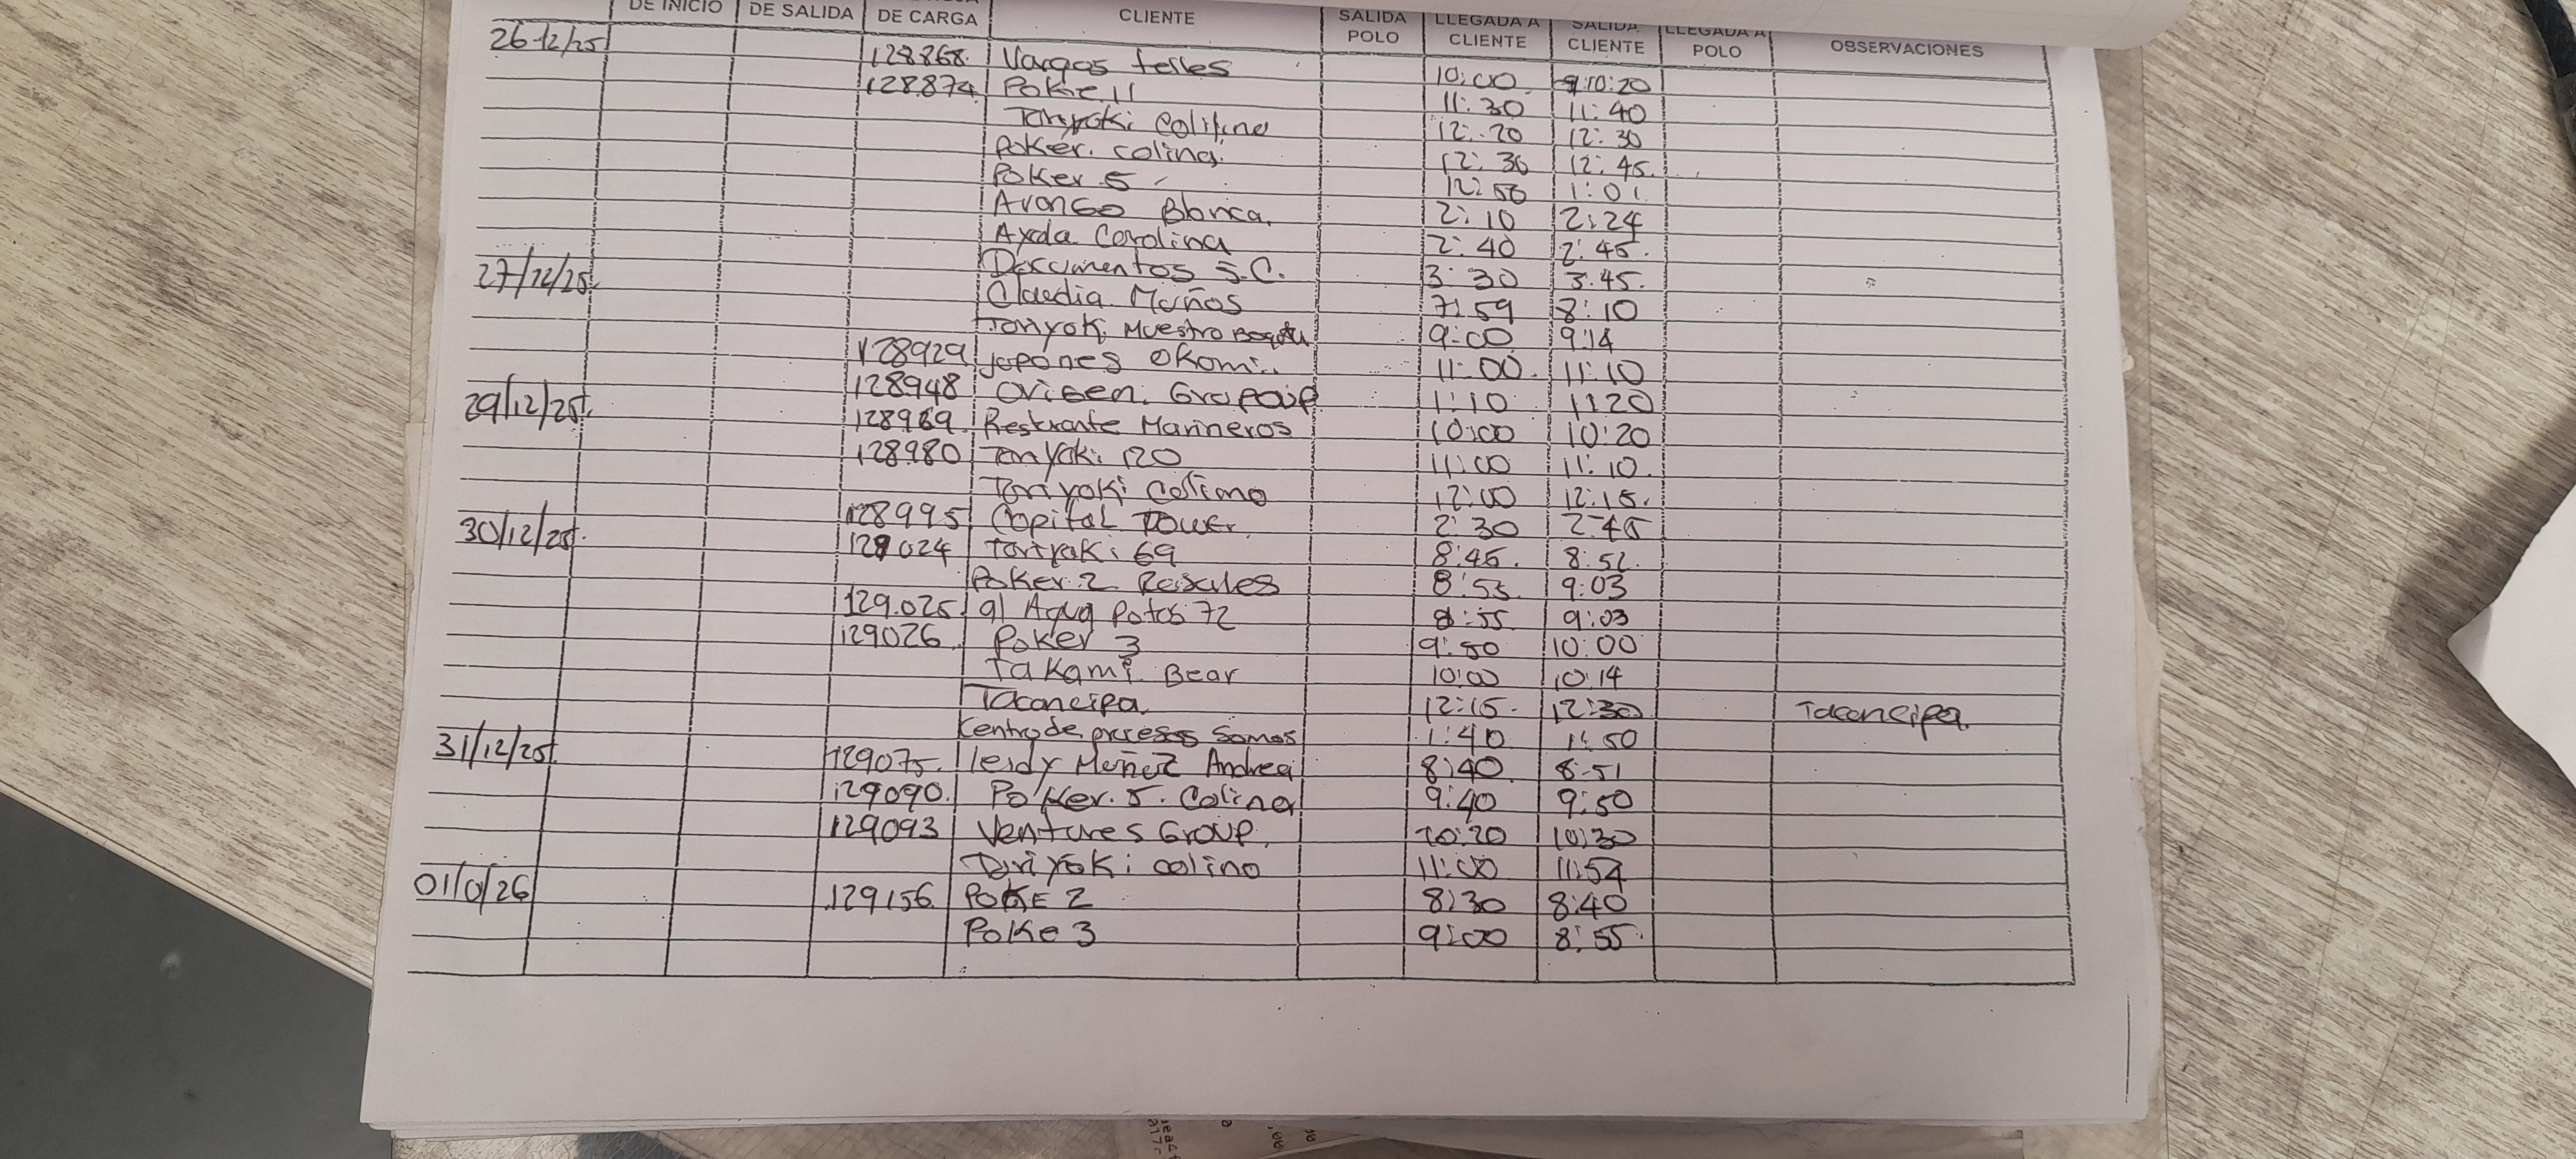 DE INICIO DE SALIDA DE CARGA CLIENTE SALIDA POLO LLEGADA A CLIENTE SALIDA CLIENTE LLEGADA A POLO OBSERVACIONES
26-12/25 128868. Vargas telles 10:00 10:20
128.874 Poke 11 11:30 11:40
Toriyaki Colina 12:20 12:30
Poker. colina. 12:30 12:45.
Poker 5 12:50 1:01
Avongo Blanca. 2:10 2:24
Ayda Carolina 2:40 2:45.
Documentos S.C. 3:30 3:45.
27/12/25 Claudia Muños 7:59 8:10
Toriyaki Muestro 9:00 9:14
128929 japones Okomi.. 11:00. 11:10
128.948 Origen. 1:10 1:20
29/12/25. 128969. Restrante Marineros 10:00 10:20
128.980 Toriyaki 120 11:00 11:10.
Toriyoki Colima 12:00 12:15.
128995 Capital Tower. 2:30 2:45
30/12/25. 129024 Toriyaki 69 8:45. 8:52.
Poker 2 Rosales 8:53. 9:03
129.025. 91 Agua Patos 72 8:55. 9:03
129026. Poker 3 9:50 10:00
Takami Bear 10:00 10:14
Tocancipa. 12:15. 12:30 Tocancipa.
Centro de procesos Somos 1:40 1:50
31/12/25 129075. leidy Muñoz Andrea 8:40. 8:51
129090. Poker. 5. Colina 9:40 9:50
129093 Ventures Group. 10:20 10:30
Toriyoki colina 11:00 11:54
01/0/26 129156. POKE 2 8:30 8:40
Poke 3 9:00 8:55